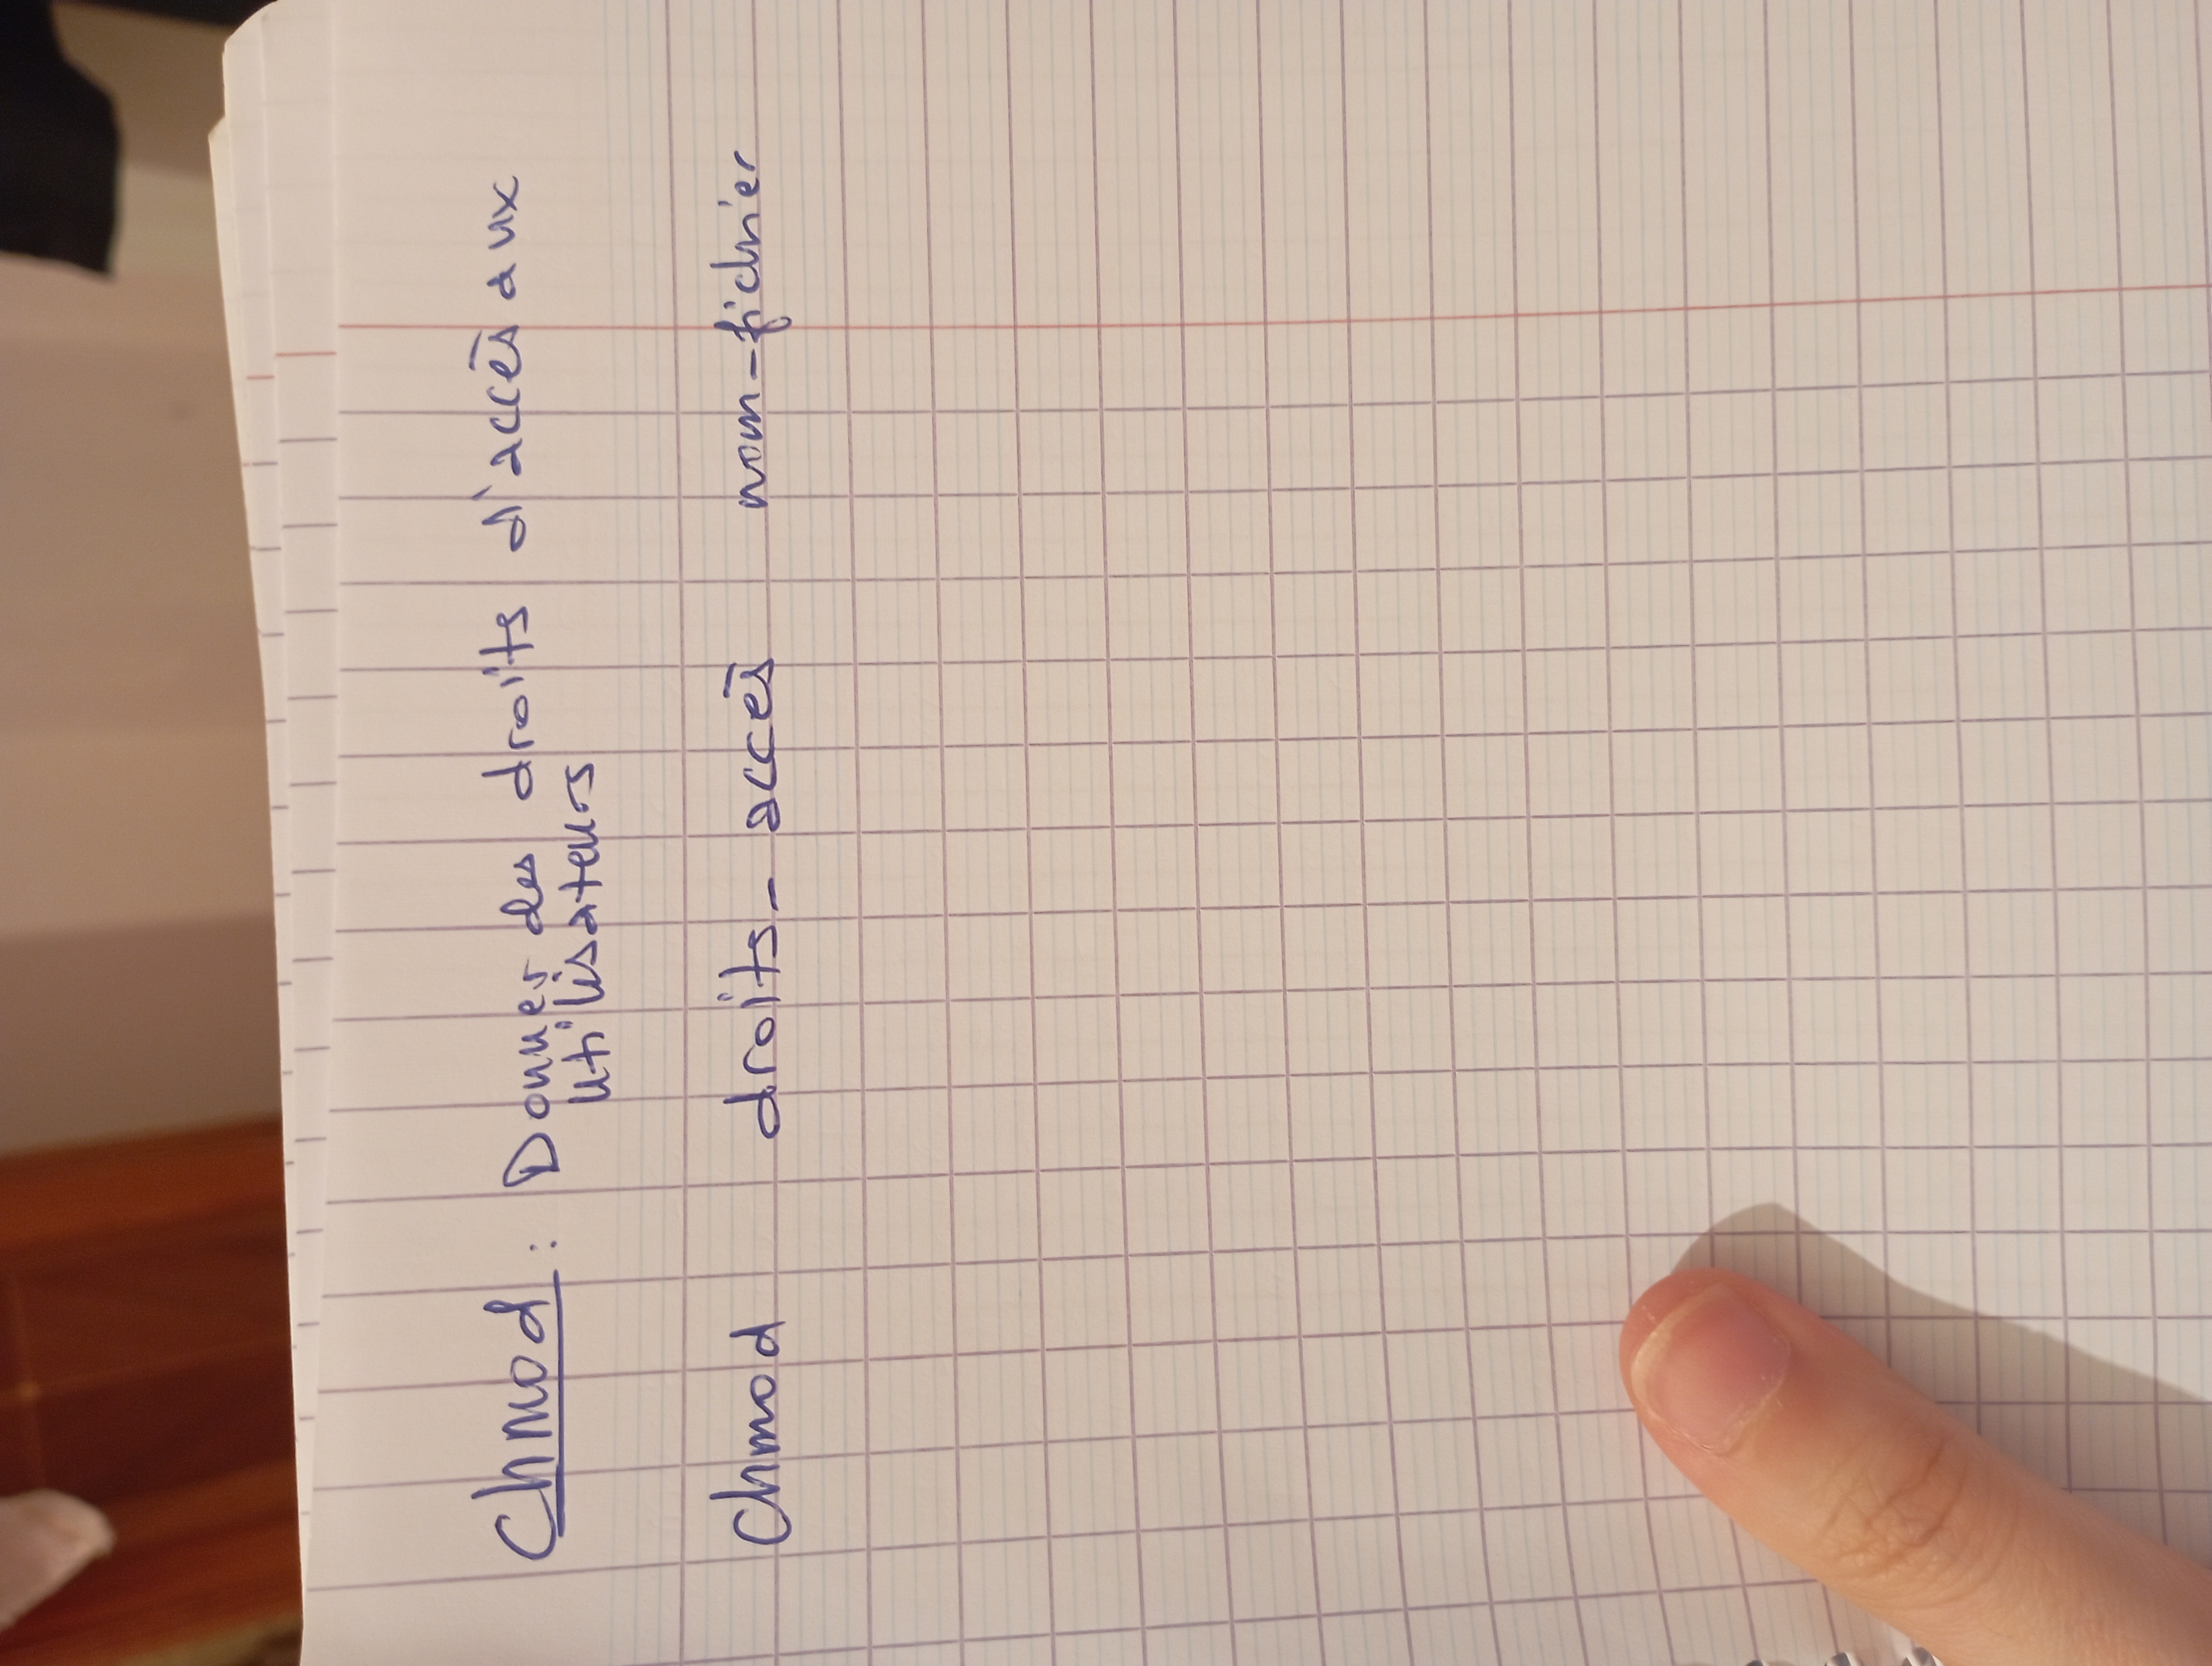 Chmod : Donner des droits d'accès aux
utilisateurs
Chmod droits_accès nom-fichier